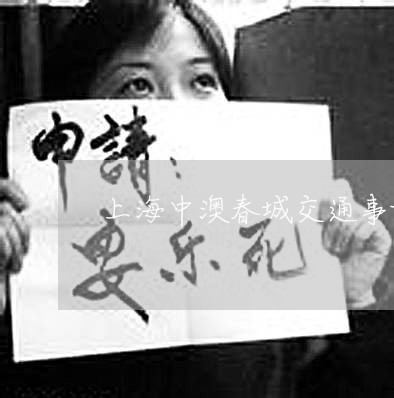 申請：
上海中澳春城交通事
安乐死